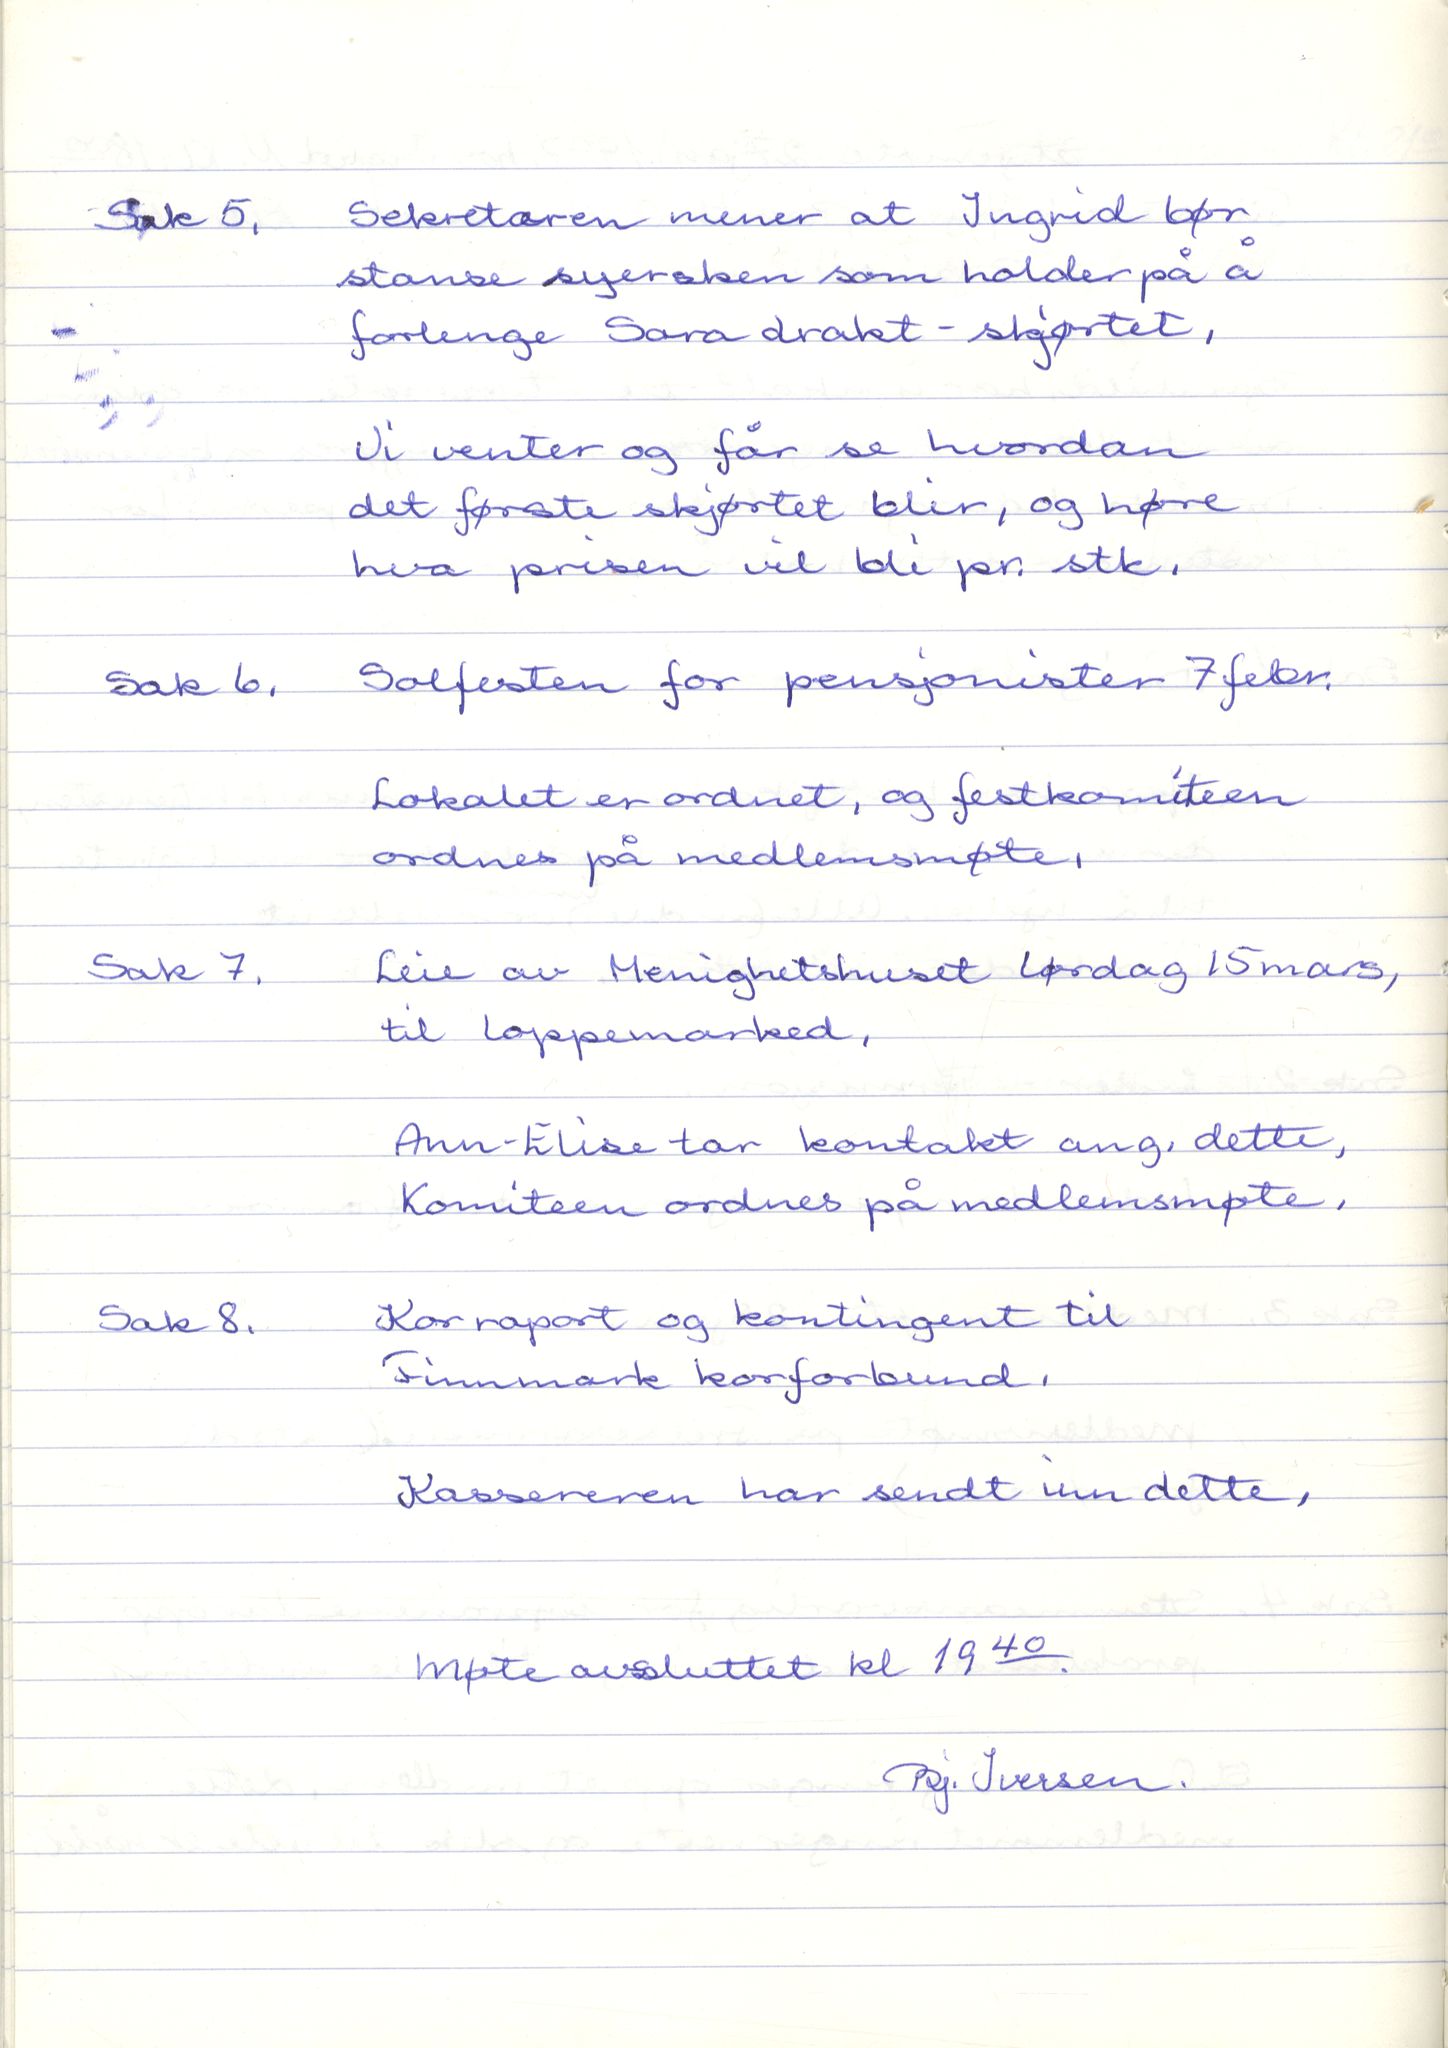 Sak 5. Sekretæren mener at Ingrid bør
stanse syersken som holder på å
forlenge Sara drakt - skjørtet.
Vi venter og får se hvordan
det første skjørtet blir, og høre
hva prisen vil bli pr. stk.
Sak 6. Solfesten for pensjonister 7 febr.
Lokalet er ordnet, og festkomiteen
ordnes på medlemsmøte.
Sak 7. Leie av Menighetshuset lørdag 15 mars,
til loppemarked.
Ann-Elise tar kontakt ang. dette,
Komiteen ordnes på medlemsmøte.
Sak 8. Kor raport og kontingent til
Finnmark korforbund.
Kassereren har sendt inn dette,
Møte avsluttet kl 19 40.
Bj. Iversen.